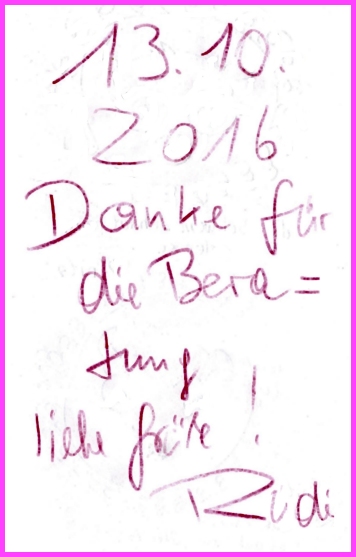 13.10.
2016
Danke für
die Bera=
tung
liebe Grüße !
Rudi